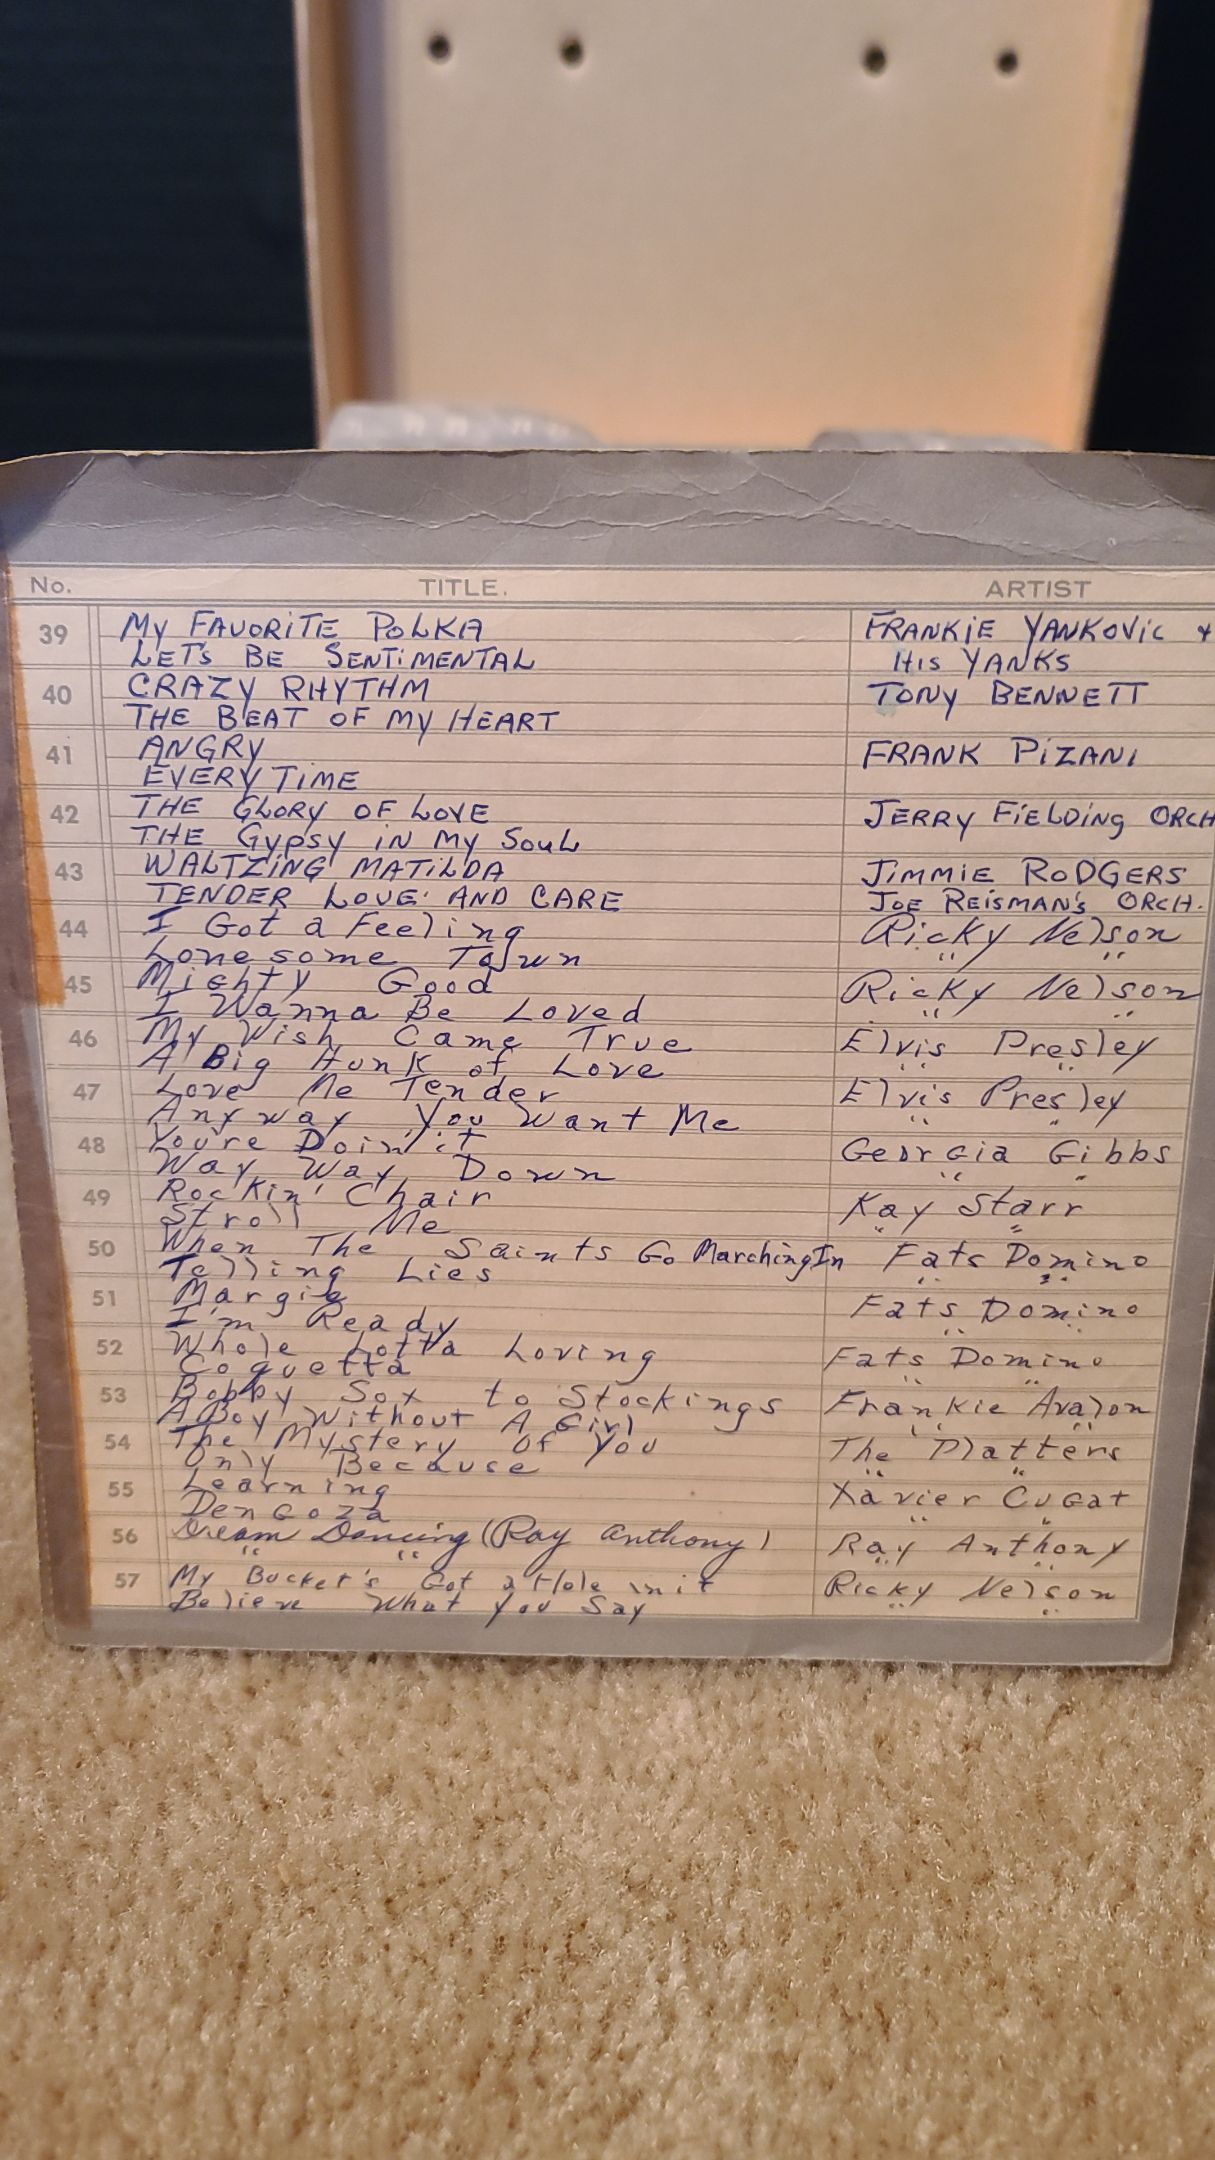 No. TITLE. ARTIST
39 MY FAVORITE POLKA FRANKIE YANKOVIC +
LET'S BE SENTIMENTAL HIS YANKS
40 CRAZY RHYTHM TONY BENNETT
THE BEAT OF MY HEART
41 ANGRY FRANK PIZANI
EVERY TIME
42 THE GLORY OF LOVE JERRY FIELDING ORCH
THE GYPSY IN MY SOUL
43 WALTZING MATILDA JIMMIE RODGERS
TENDER LOVE AND CARE JOE REISMAN'S ORCH.
44 I Got a Feeling Ricky Nelson
Lonesome Town " "
45 Mighty Good Ricky Nelson
I Wanna Be Loved " "
46 My Wish Came True Elvis Presley
A Big Hunk of Love " "
47 Love Me Tender Elvis Presley
Anyway You Want Me " "
48 You're Doin' it Georgia Gibbs
Way Way Down " "
49 Rockin' Chair Kay Starr
Stroll Me " "
50 When The Saints Go Marching In Fats Domino
Telling Lies " "
51 Margie Fats Domino
I'm Ready " "
52 Whole Lotta Loving Fats Domino
Coquetta " "
53 Bobby Sox to Stockings Frankie Avalon
A Boy Without A Girl " "
54 The Mystery of You The Platters
Only Because " "
55 Learning Xavier Cugat
Dengoza " "
56 Dream Dancing (Ray Anthony) Ray Anthony
" " " "
57 My Bucket's Got a Hole in it Ricky Nelson
Believe What You Say " "